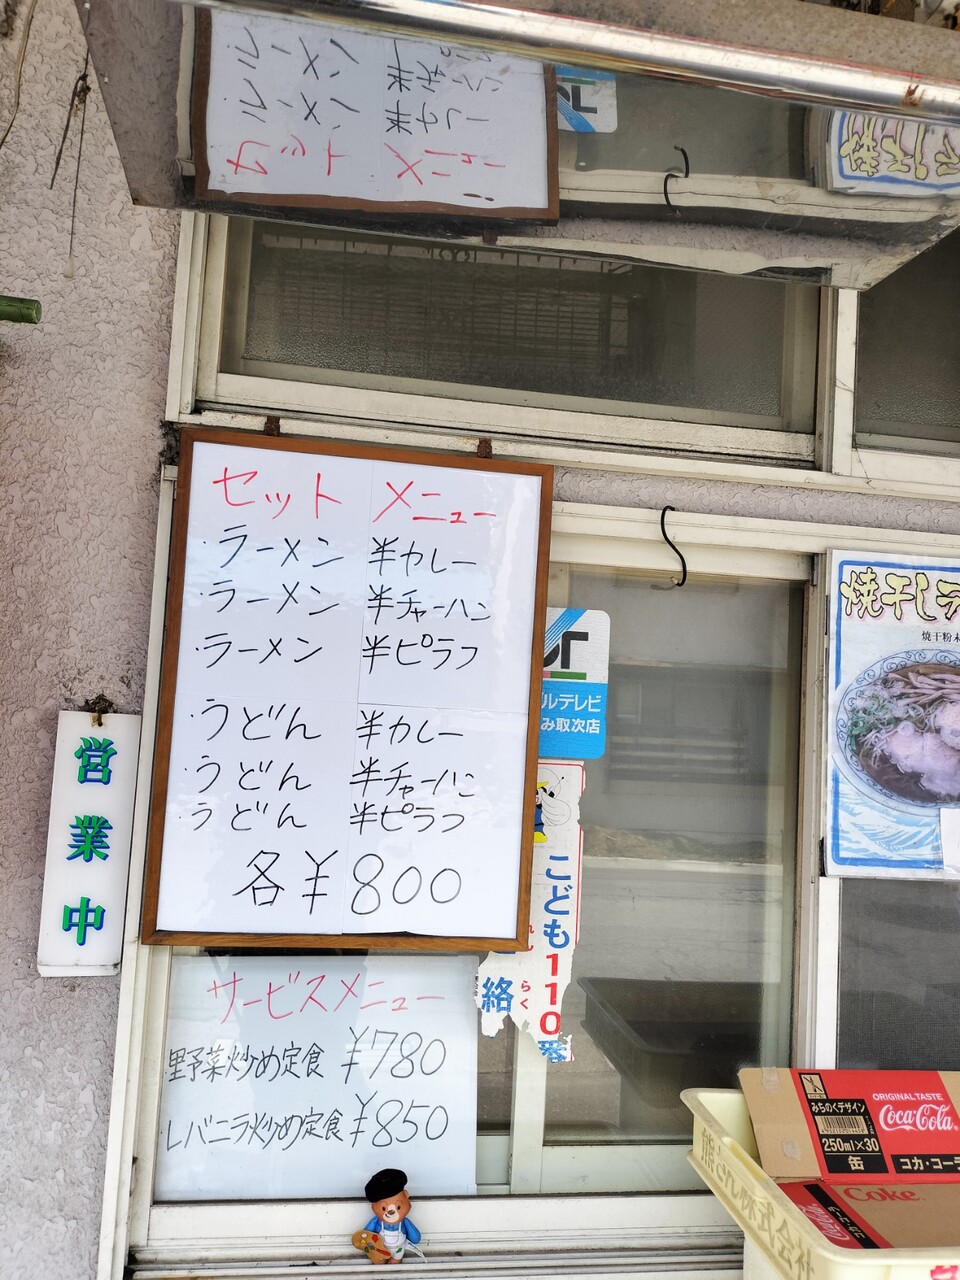 セット メニュー
・ラーメン 半カレー
・ラーメン 半チャーハン
・ラーメン 半ピラフ
・うどん 半カレー
・うどん 半チャーハン
・うどん 半ピラフ
各¥800
営業中
サービスメニュー
野菜炒め定食 ¥780
レバニラ炒め定食 ¥850
ルテレビ
み取次店
こども110番
絡
らく
焼干し
焼干粉末
みちのくデザイン
250ml×30
缶
ORIGINAL TASTE
Coca-Cola
コカ・コーラ
Coke